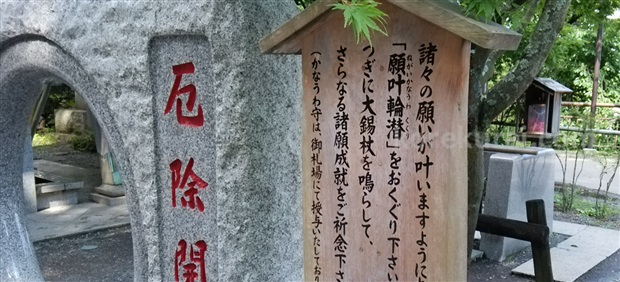 諸々の願いが叶いますように
「願叶輪潜」をおくぐり下さい
ねがいかなうわくぐり
つぎに大錫杖を鳴らして、
さらなる諸願成就をご祈念下さ
(かなうわ守は、御札場にて授与いたしており
厄除開